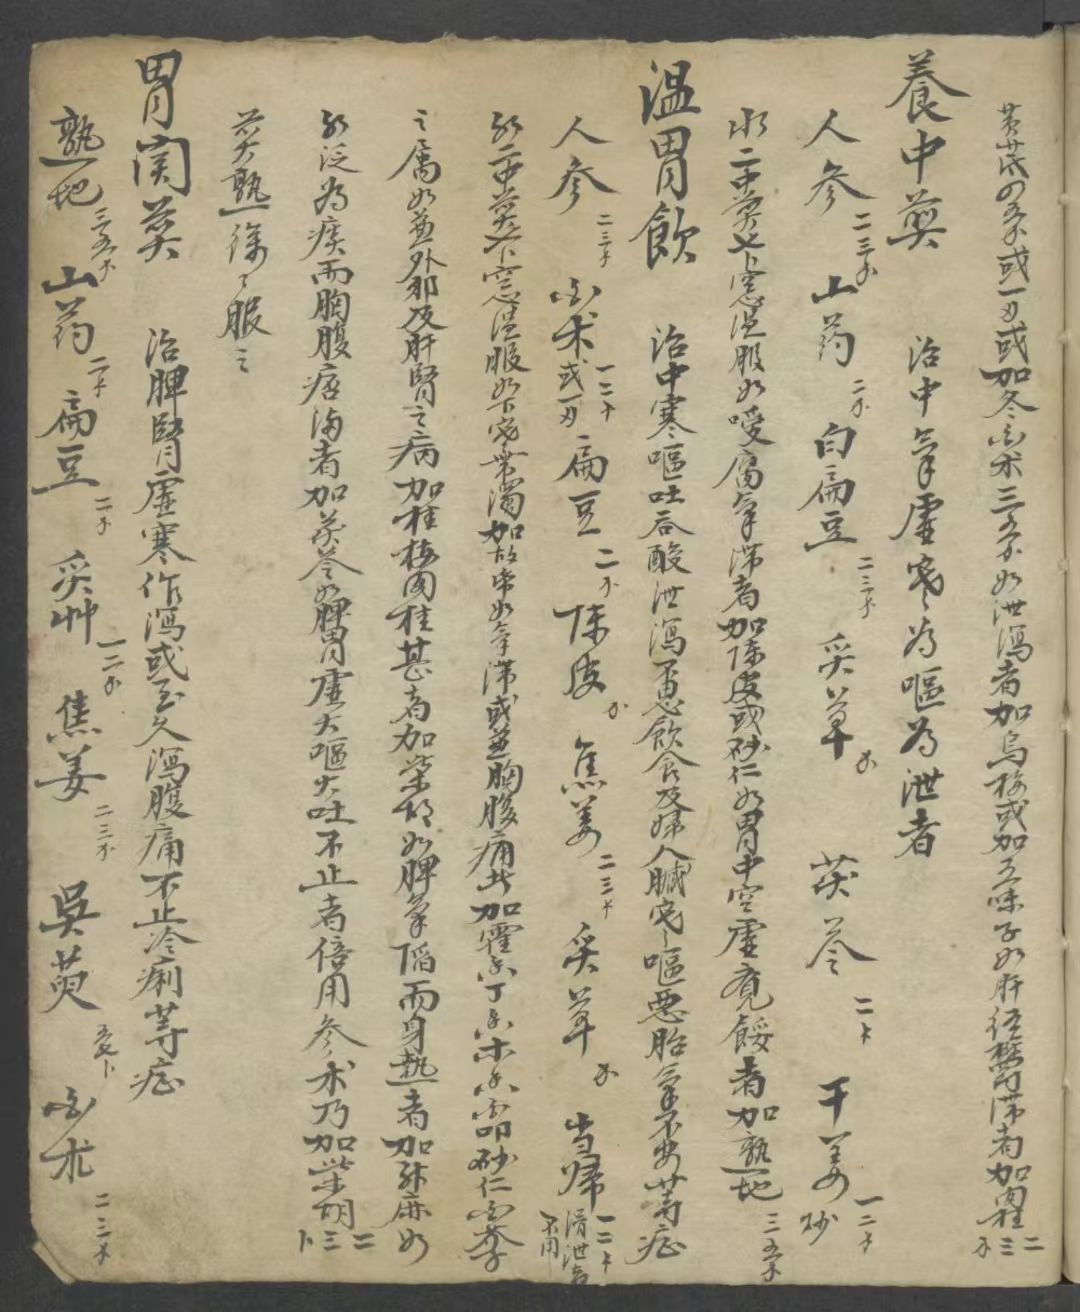 黄芪四五分或一刃或加冬白术三五分如泄瀉者加烏梅或加五味子如肝經鬱滯者加肉桂二三分
養中煎 治中氣虛寒為嘔為泄者
人參二三分 山药二分 白扁豆二三分 炙草分 茯苓二卜 干姜炒一二分
水二中煎七卜空心溫服如噯腐氣滯者加陳皮或砂仁如胃中空虛覺餒者加熟地三五分
溫胃飲 治中寒嘔吐吞酸泄瀉不思飲食及婦人臟寒嘔惡胎氣不安等症
人參二三分 白术一二分或一刃 扁豆二分 陳皮分 焦姜二三卜 炙草分 当归一二卜滑泄者不用
水二中煎下空心溫服如下寒帶濁加故帋如氣滯或兼胸腹痛此加藿香丁香木香白叩砂仁白芥子
之屬如兼外邪及肝腎之病加桂枝肉桂甚者加柴胡如脾氣陷而身热者加升麻如
水泛為痰而胸腹痞满者加茯苓如脾胃虛大嘔大吐不止者倍用參术乃加柴胡二三卜
煎熟徐々服之
胃関煎 治脾腎虛寒作瀉或至久瀉腹痛不止冷痢等症
熟地三五分 山药二卜 扁豆二分 炙艸一二分 焦姜二三分 吳萸五七卜 白术二三分